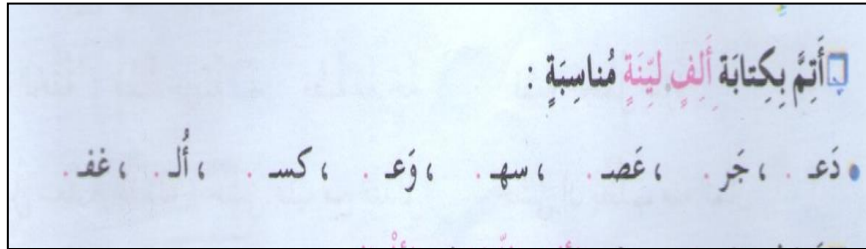 أَتِمَّ بِكِتابَةِ أَلِفٍ لَيِّنَةٍ مُناسِبَةٍ :
• دَعـ . ، جَر . ، عَصـ . ، سهـ . ، وَعـ . ، كسـ . ، أُلـ . ، غفـ .